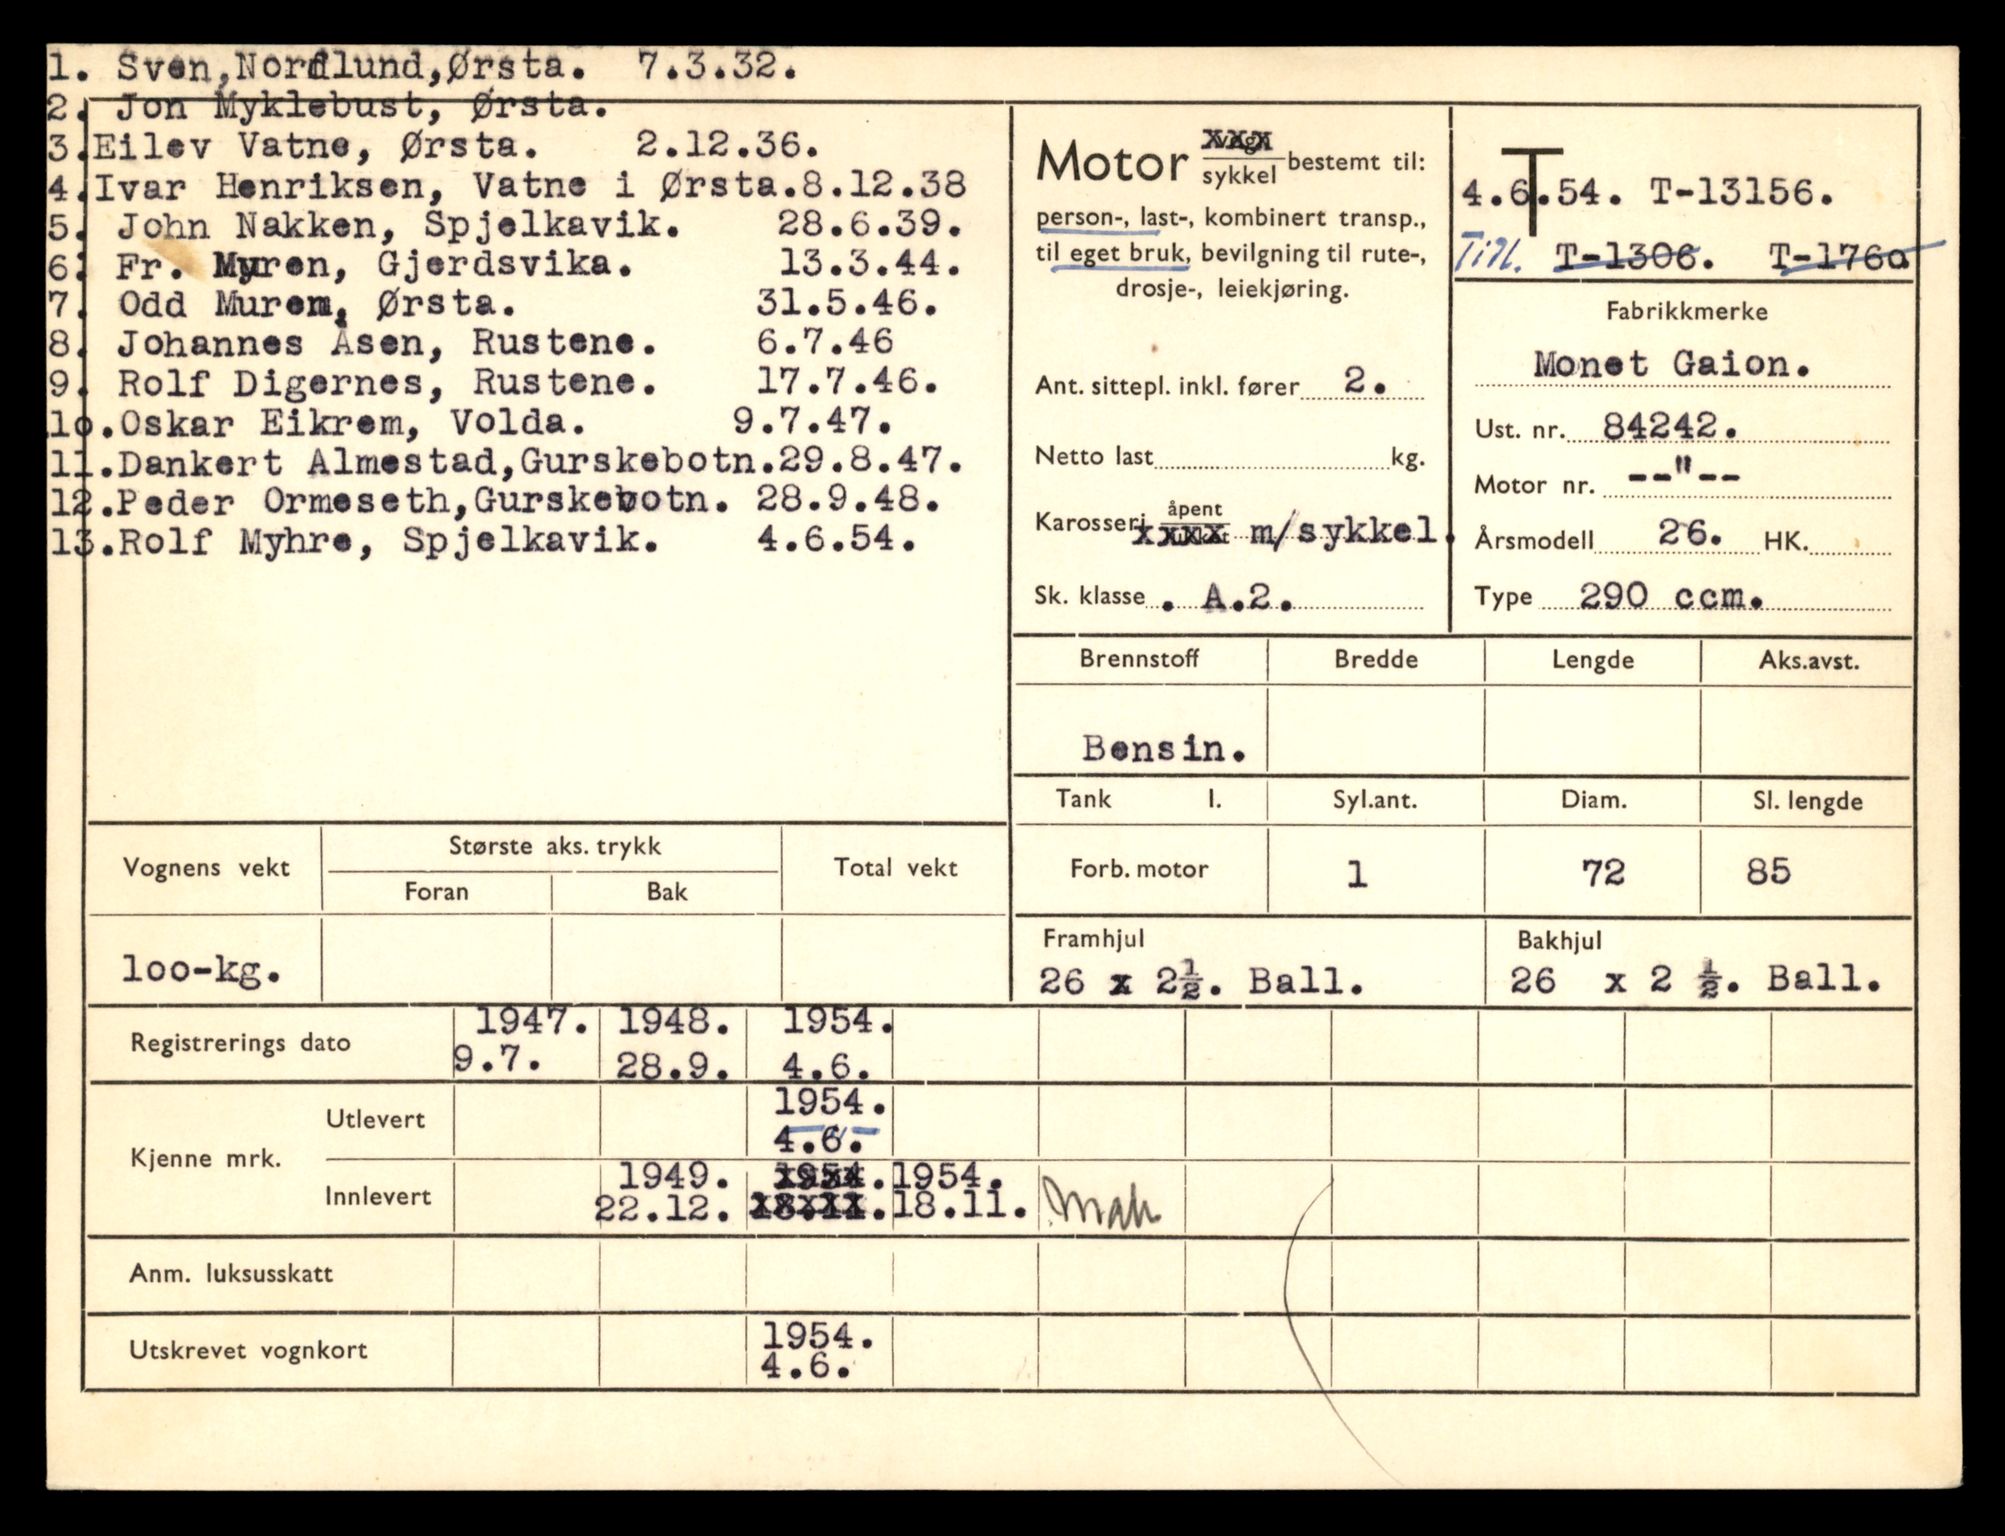 1. Sven,Nordlund,Ørsta. 7.3.32.
2. Jon Myklebust, Ørsta.
3.Eilev Vatne, Ørsta. 2.12.36.
4.Ivar Henriksen, Vatne i Ørsta.8.12.38
5. John Nakken, Spjelkavik. 28.6.39.
6. Fr. Myren, Gjerdsvika. 13.3.44.
7. Odd Murem, Ørsta. 31.5.46.
8. Johannes Åsen, Rustene. 6.7.46
9. Rolf Digernes, Rustene. 17.7.46.
1o.Oskar Eikrem, Volda. 9.7.47.
11.Dankert Almestad,Gurskebotn.29.8.47.
12.Peder Ormeseth,Gurskebotn. 28.9.48.
13.Rolf Myhre, Spjelkavik. 4.6.54.
Motor vogn sykkel bestemt til:
person-, last-, kombinert transp.,
til eget bruk, bevilgning til rute-,
drosje-, leiekjøring.
Ant. sittepl. inkl. fører 2.
Netto last kg.
Karosseri åpent xxxx m/sykkel.
Sk. klasse . A.2.
T
4.6.54. T-13156.
Tidl. T-1306. T-176o
Fabrikkmerke
Monet Gaion.
Ust. nr. 84242.
Motor nr. --"--
Årsmodell 26. HK.
Type 290 ccm.
Brennstoff Bredde Lengde Aks.avst.
Bensin.
Tank l. Syl.ant. Diam. Sl. lengde
Forb. motor 1 72 85
Framhjul Bakhjul
26 x 2½. Ball. 26 x 2 ½. Ball.
Vognens vekt Største aks. trykk Total vekt
Foran Bak
1oo-kg.
Registrerings dato 1947. 1948. 1954.
9.7. 28.9. 4.6.
Kjenne mrk. Utlevert 1954.
4.6.
Innlevert 1949. 1954. 1954.
22.12. 18.11. 18.11.
Anm. luksusskatt
Utskrevet vognkort 1954.
4.6.